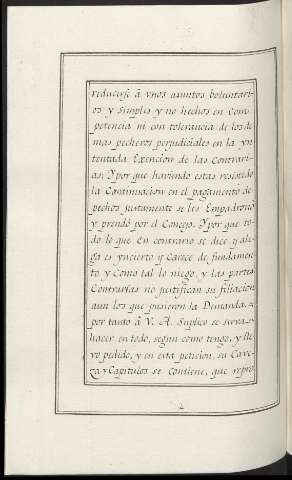 reducirse â vnos asuntos boluntari-
os y Simples y no hechos en Com-
petencia ni con tolerancia de los de
mas pecheros perjudiciales en la yn
tentada Exencion de las Contrari-
as: Ypor que haviendo estas resistido
la Continuacion en el pagamento de
pechos justamente se les Empadronó
y prendó por el Concejo. Ypor que to-
do lo que En contrario se dice y ale-
ga es yncierto y Carece de fundamen-
to y Como tal lo niego, y las partes
Contrarias no justifican su filiacion
aun los que pusieron la Demanda,
por tanto â V. A. Suplico se sirva
hacer en todo, segun como tengo, y lle-
vo pedido, y en esta peticion, su Cave-
za y Capitulos se Contiene, que repro